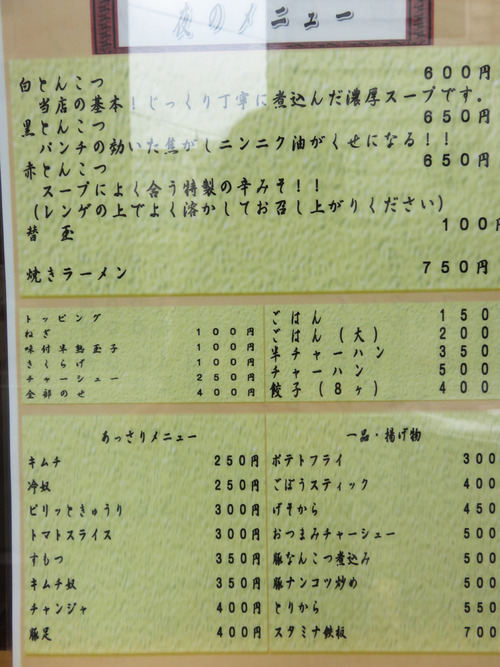 夜のメニュー
白とんこつ 600円
当店の基本！じっくり丁寧に煮込んだ濃厚スープです。
黒とんこつ 650円
パンチの効いた焦がしニンニク油がくせになる！！
赤とんこつ 650円
スープによく合う特製の辛みそ！！
（レンゲの上でよく溶かしてお召し上がりください）
替玉 100円
焼きラーメン 750円
トッピング
ねぎ 100円
味付半熟玉子 100円
きくらげ 100円
チャーシュー 250円
全部のせ 400円
ごはん 150
ごはん（大） 200
半チャーハン 350
チャーハン 500
餃子（8ヶ） 400
あっさりメニュー
キムチ 250円
冷奴 250円
ピリッときゅうり 300円
トマトスライス 300円
すもつ 350円
キムチ奴 350円
チャンジャ 400円
豚足 400円
一品・揚げ物
ポテトフライ 300
ごぼうスティック 400
げそから 450
おつまみチャーシュー 500
豚なんこつ煮込み 500
豚ナンコツ炒め 500
とりから 550
スタミナ鉄板 700